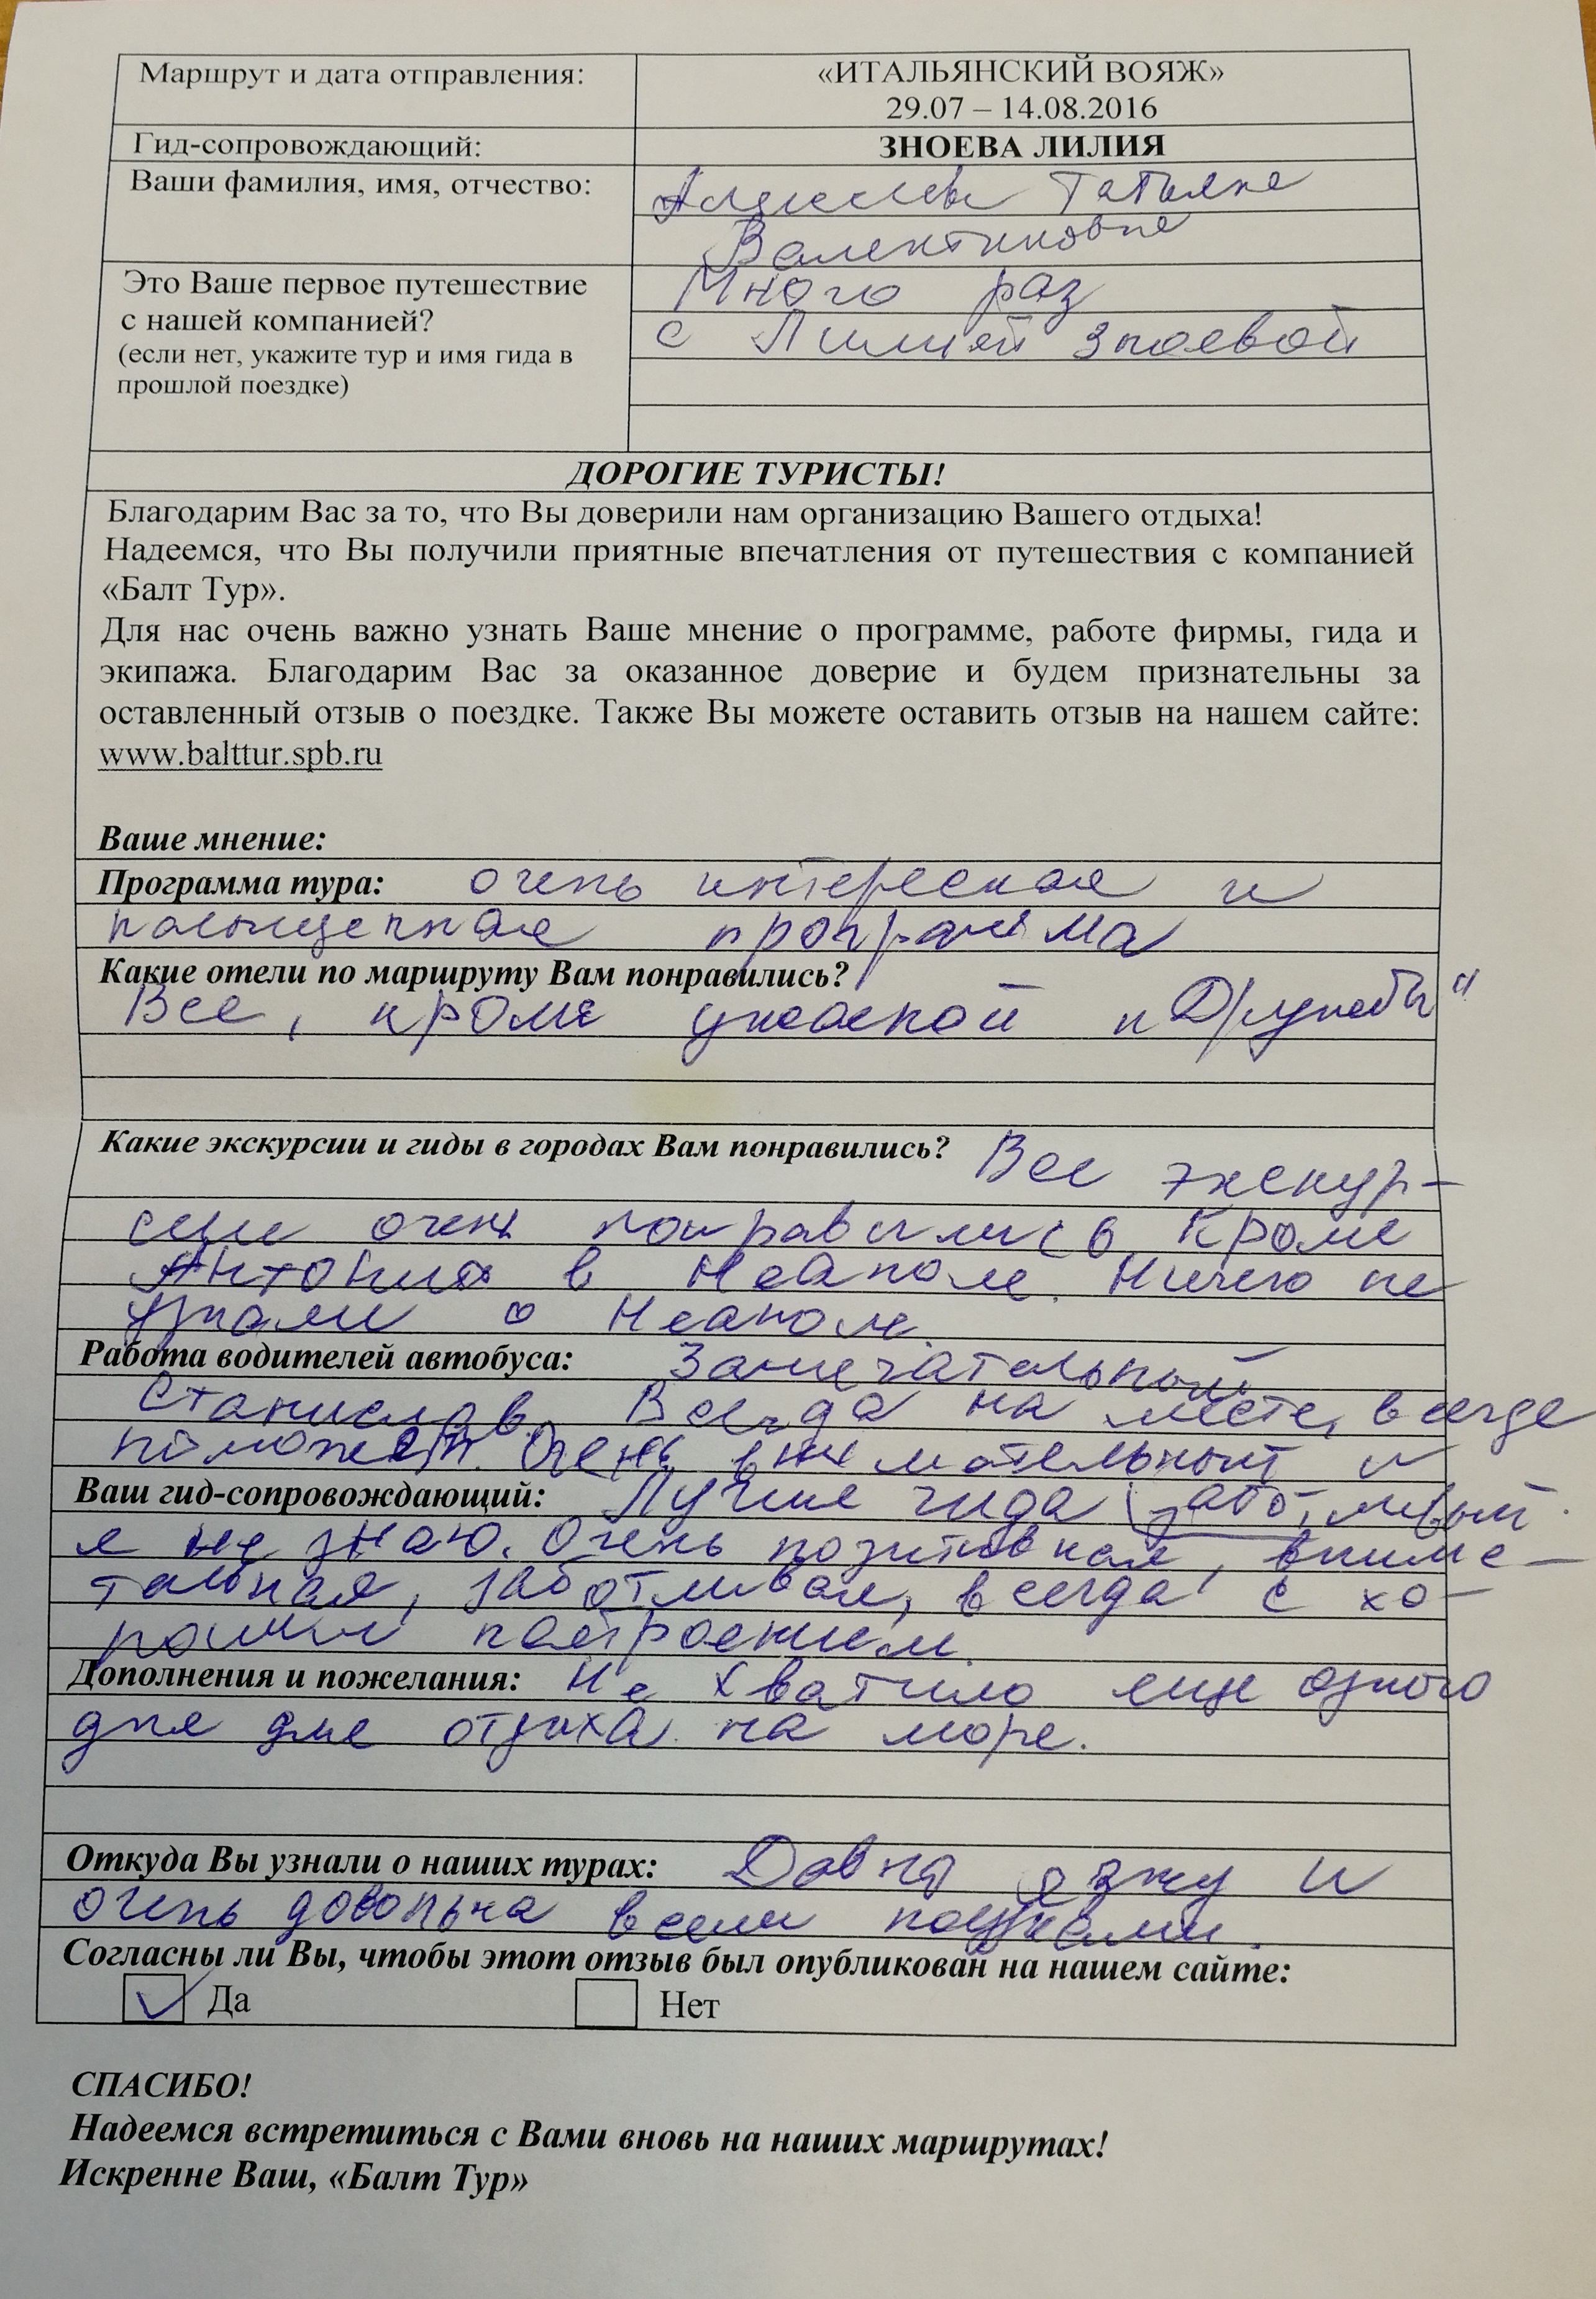 Маршрут и дата отправления:
«ИТАЛЬЯНСКИЙ ВОЯЖ»
29.07 – 14.08.2016
Гид-сопровождающий:
ЗНОЕВА ЛИЛИЯ
Ваши фамилия, имя, отчество:
Татьяна
Валентиновна
Это Ваше первое путешествие
с нашей компанией?
(если нет, укажите тур и имя гида в
прошлой поездке)
Много раз
с Лилией Зноевой
ДОРОГИЕ ТУРИСТЫ!
Благодарим Вас за то, что Вы доверили нам организацию Вашего отдыха!
Надеемся, что Вы получили приятные впечатления от путешествия с компанией
«Балт Тур».
Для нас очень важно узнать Ваше мнение о программе, работе фирмы, гида и
экипажа. Благодарим Вас за оказанное доверие и будем признательны за
оставленный отзыв о поездке. Также Вы можете оставить отзыв на нашем сайте:
www.balttur.spb.ru
Ваше мнение:
Программа тура: очень интересная и
насыщенная программа
Какие отели по маршруту Вам понравились?
Все, кроме ужасной "Дружбы"
Какие экскурсии и гиды в городах Вам понравились? Все экскур-
сии очень понравились, кроме
Антонио в Неаполе. Ничего не
узнали о Неаполе.
Работа водителей автобуса: Замечательный
Станислав. Всегда на месте, всегда
поможет. Очень внимательный и
заботливый.
Ваш гид-сопровождающий: Лучше гида
я не знаю. Очень позитивная, внима-
тельная, заботливая, всегда с хо-
рошим настроением.
Дополнения и пожелания: Не хватило еще одного
дня для отдыха на море.
Откуда Вы узнали о наших турах: Давно езжу и
очень довольна всеми поездками.
Согласны ли Вы, чтобы этот отзыв был опубликован на нашем сайте:
Да Нет
СПАСИБО!
Надеемся встретиться с Вами вновь на наших маршрутах!
Искренне Ваш, «Балт Тур»